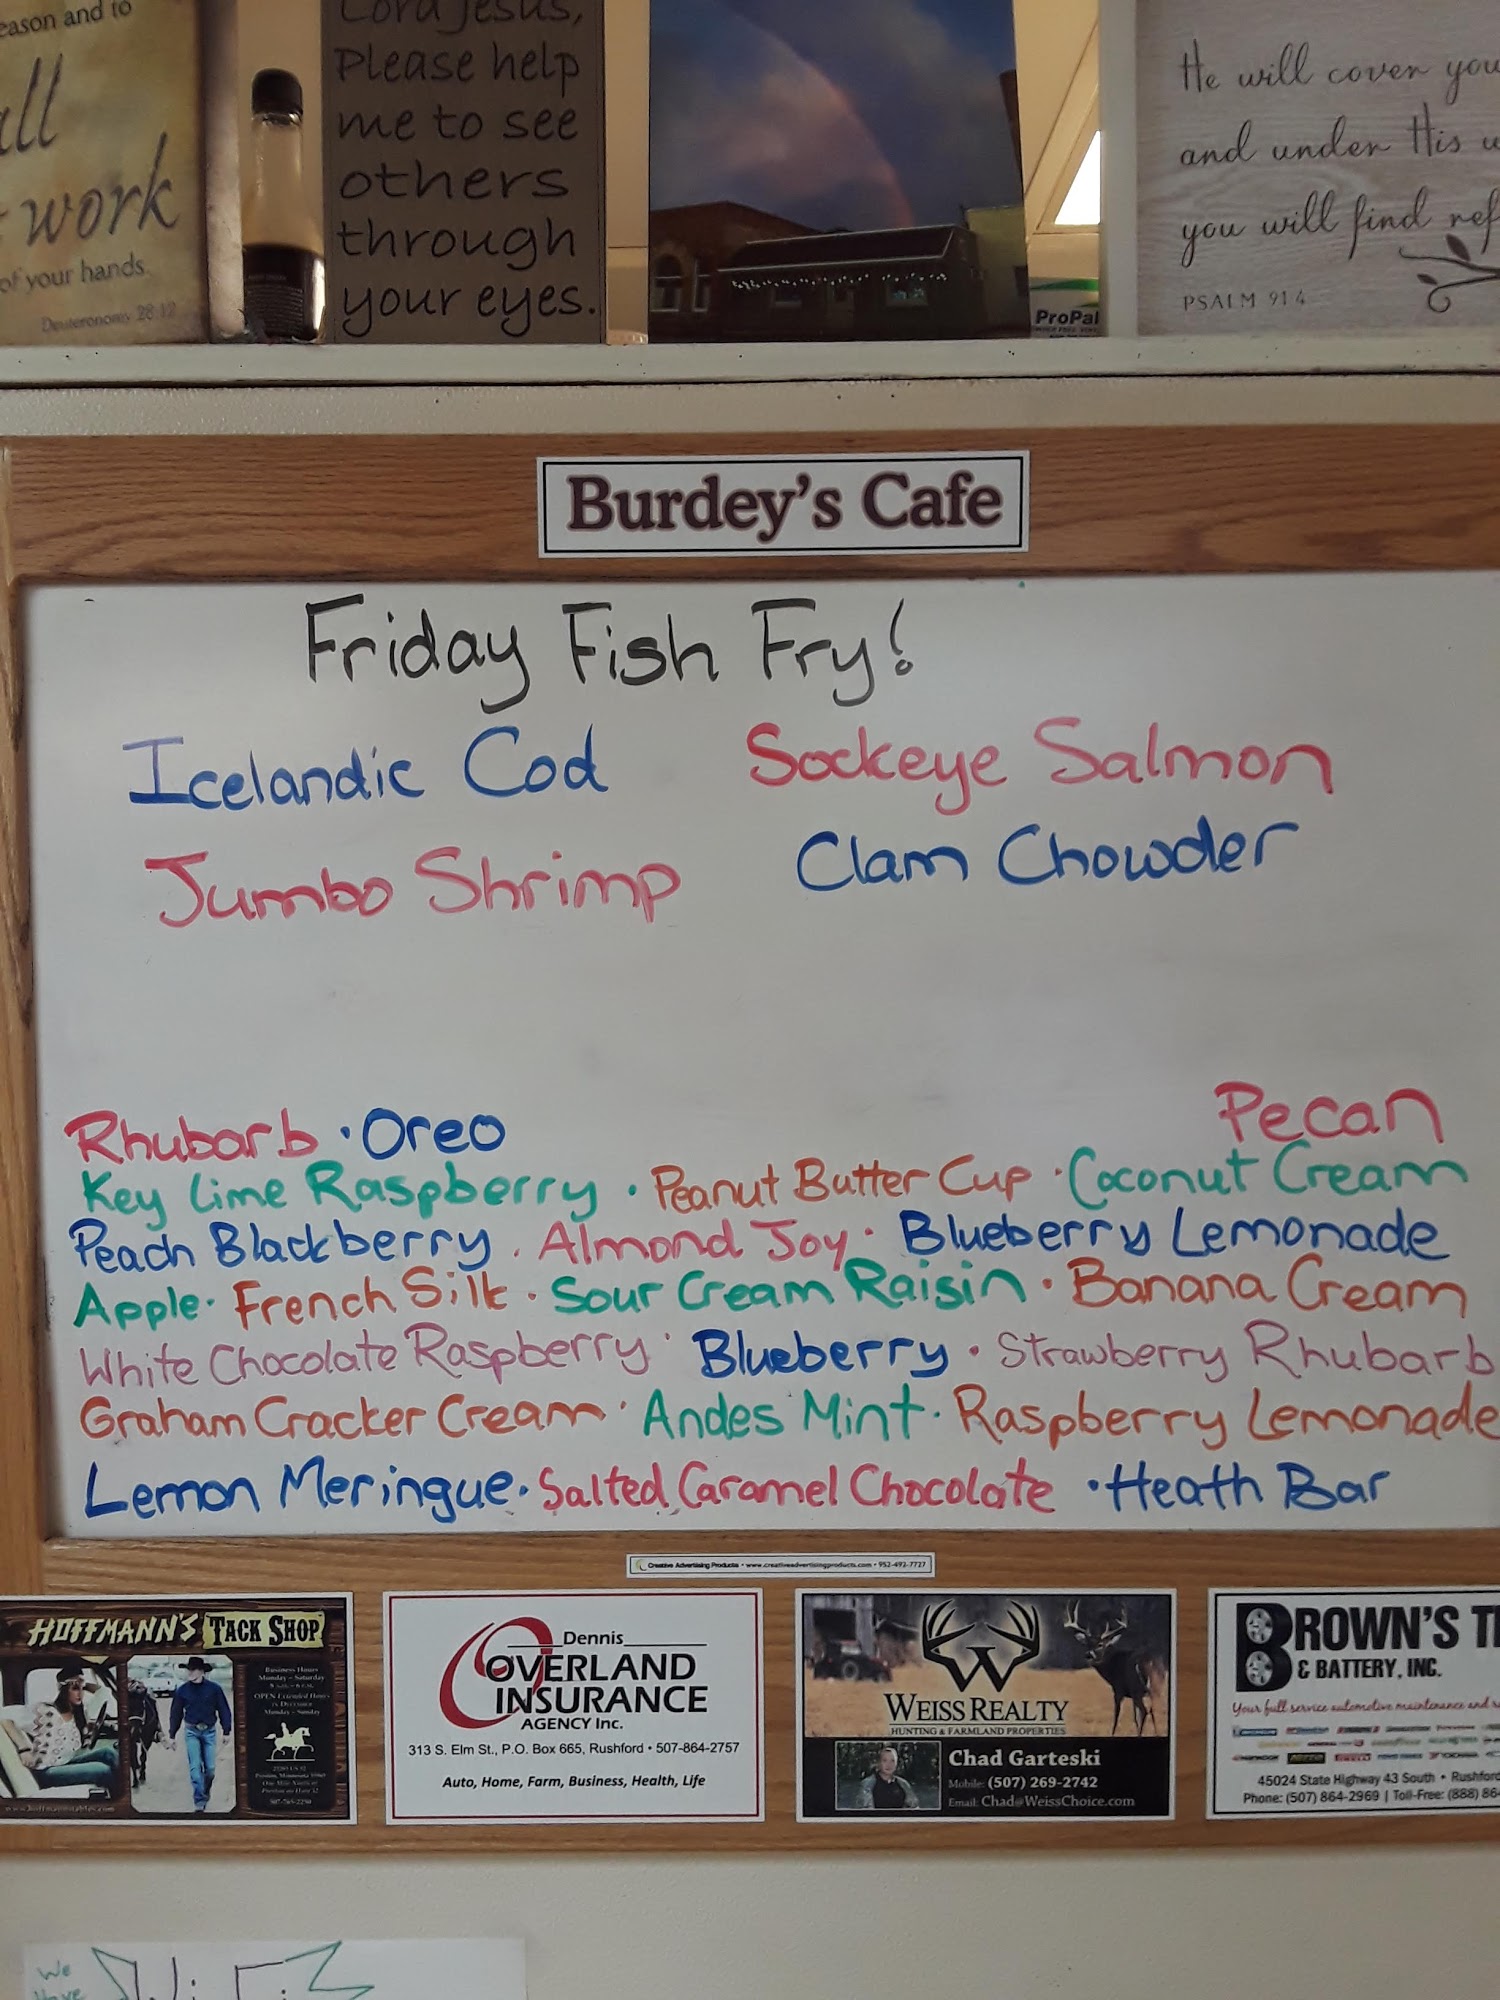 eason and to
all
work
of your hands.
Deuteronomy 28:12
Lord Jesus,
Please help
me to see
others
through
your eyes.
ProPal
He will cover you
and under His w
you will find ref
PSALM 91:4
Burdey's Cafe
Friday Fish Fry!
Icelandic Cod Sockeye Salmon
Jumbo Shrimp Clam Chowder
Rhubarb · Oreo Pecan
Key Lime Raspberry · Peanut Butter Cup · Coconut Cream
Peach Blackberry · Almond Joy · Blueberry Lemonade
Apple · French Silk · Sour Cream Raisin · Banana Cream
White Chocolate Raspberry · Blueberry · Strawberry Rhubarb
Graham Cracker Cream · Andes Mint · Raspberry Lemonade
Lemon Meringue · Salted Caramel Chocolate · Heath Bar
Creative Advertising Products • www.creativeadvertisingproducts.com • 952-492-7727
HOFFMANN'S TACK SHOP
Business Hours
Monday – Saturday
OPEN Extended Hours
in December
Monday – Sunday
507-765-2250
Dennis
OVERLAND
INSURANCE
AGENCY Inc.
313 S. Elm St., P.O. Box 665, Rushford • 507-864-2757
Auto, Home, Farm, Business, Health, Life
W
WEISS REALTY
HUNTING & FARMLAND PROPERTIES
Chad Garteski
Mobile: (507) 269-2742
Email: Chad@WeissChoice.com
BROWN'S TI
& BATTERY, INC.
Your full service automotive maintenance and r
45024 State Highway 43 South • Rushford
Phone: (507) 864-2969 | Toll-Free: (888) 86
We
Have
WiFi